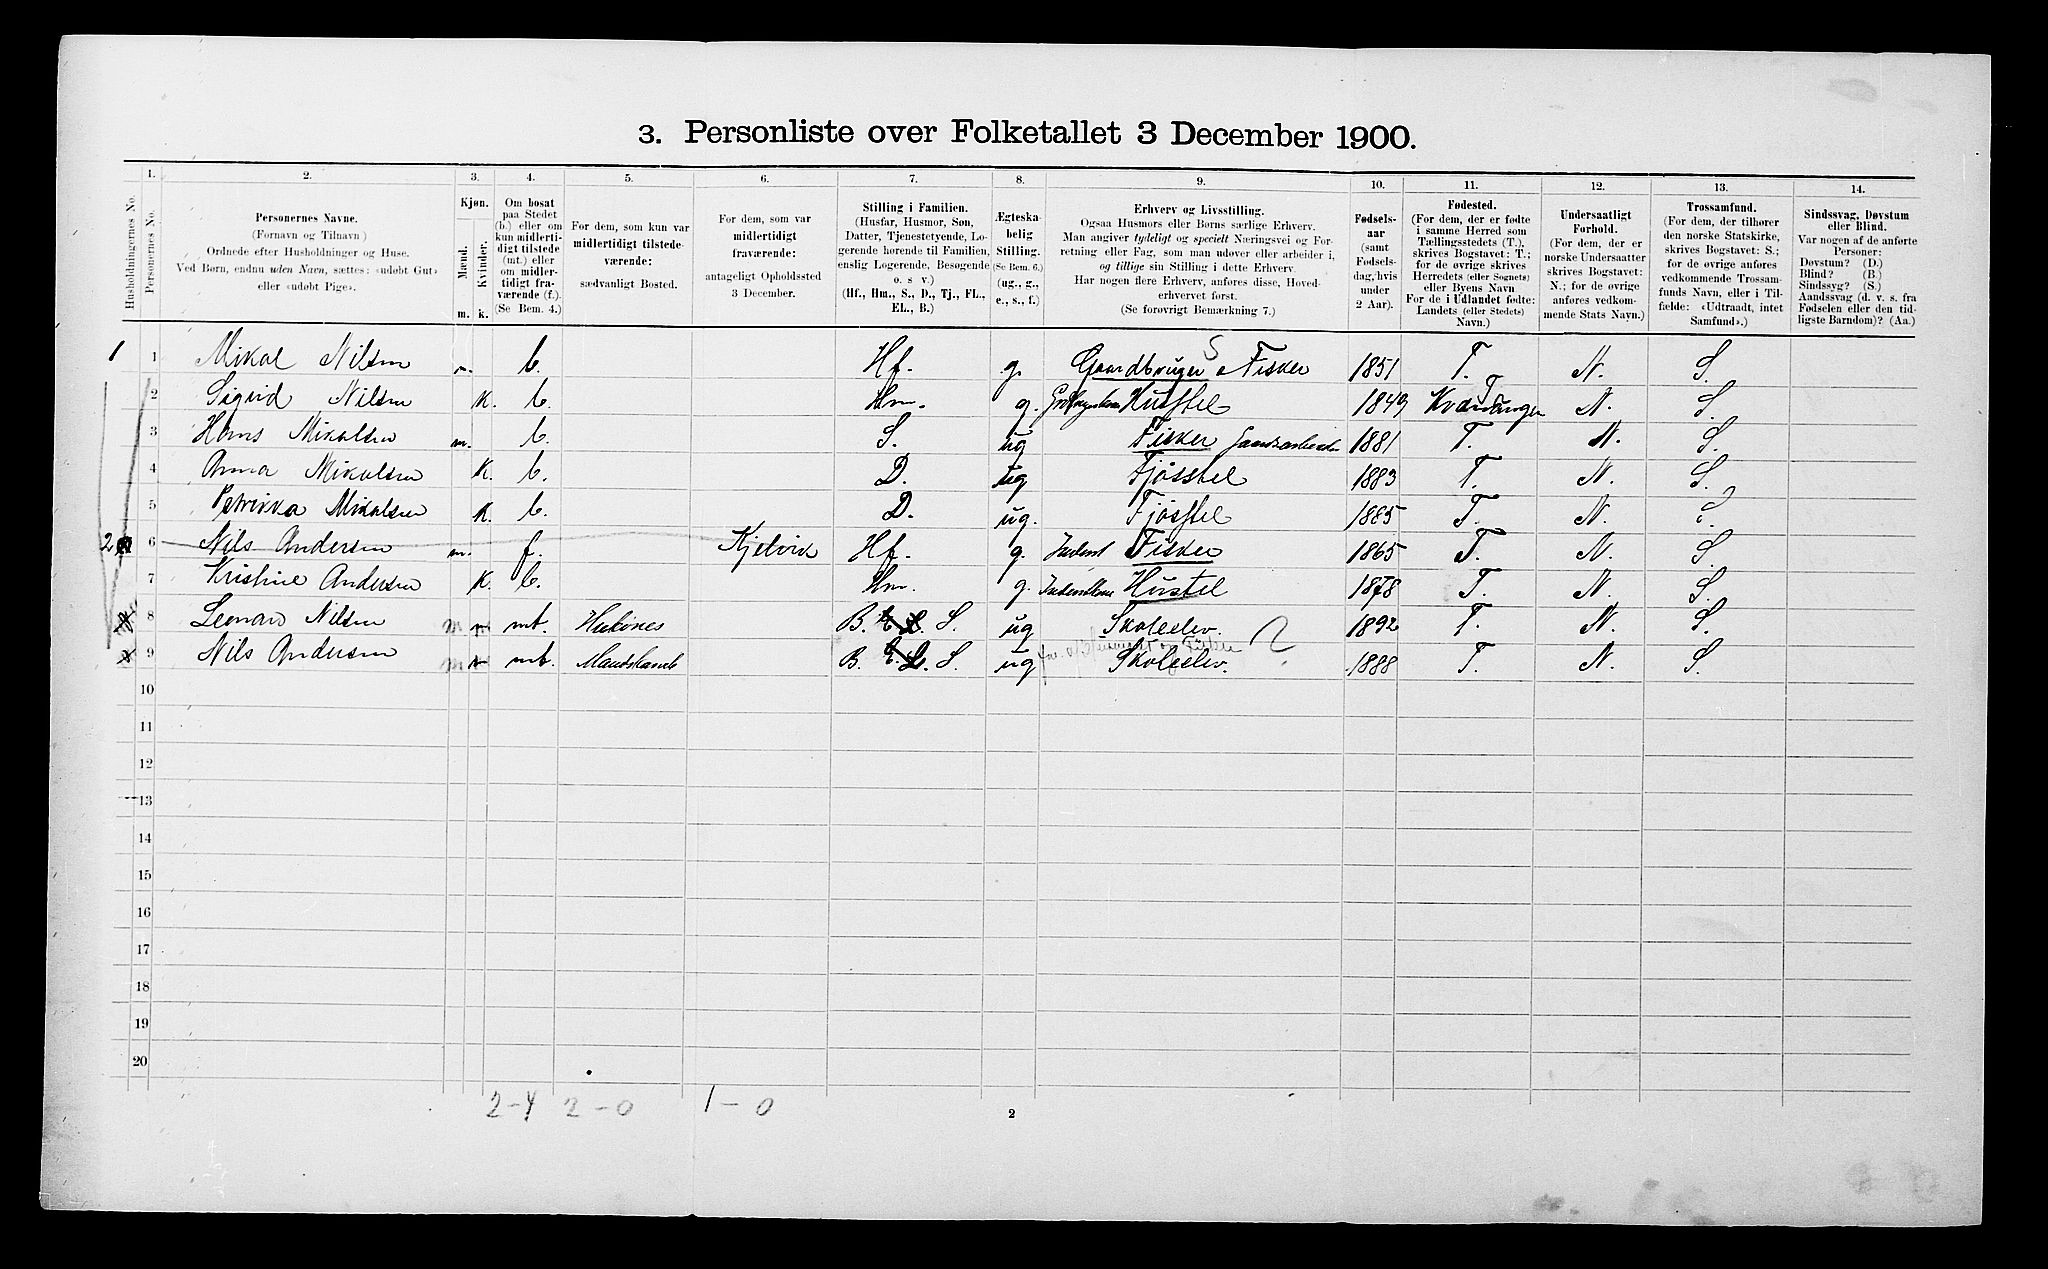 3. Personliste over Folketallet 3 December 1900.
1. 2. 3. 4. 5. 6. 7. 8. 9. 10. 11. 12. 13. 14.
Husholdningernes No.
Personernes No.
Personernes Navne.
(Fornavn og Tilnavn)
Ordnede efter Husholdninger og Huse.
Ved Børn, endnu uden Navn, sættes: «udøbt Gut»
eller «udøbt Pige».
Kjøn.
Mænd.
Kvinder.
m. k.
Om bosat
paa Stedet
(b.) eller om
kun midlerti-
digt tilstede
(mt.) eller
om midler-
tidigt fra-
værende (f.).
(Se Bem. 4.)
For dem, som kun var
midlertidigt tilstede-
værende:
sædvanligt Bosted.
For dem, som var
midlertidigt
fraværende:
antageligt Opholdssted
3 December.
Stilling i Familien.
(Husfar, Husmor, Søn,
Datter, Tjenestetyende, Lo-
gerende hørende til Familien,
enslig Logerende, Besøgende
o. s v.)
(Hf., Hm., S., D., Tj., FL.,
EL., B.)
Ægteska-
belig
Stilling.
(Se Bem. 6.)
(ug., g.,
e., s., f.)
Erhverv og Livsstilling.
Ogsaa Husmors eller Børns særlige Erhverv.
Man angiver tydeligt og specielt Næringsvei og For-
retning eller Fag, som man udøver eller arbeider i,
og tillige sin Stilling i dette Erhverv.
Har nogen flere Erhverv, anføres disse, Hoved-
erhvervet først.
(Se forøvrigt Bemærkning 7.)
Fødsels-
aar
(samt
Fødsels-
dag, hvis
under
2 Aar).
Fødested.
(For dem, der er fødte
i samme Herred som
Tællingsstedets (T.),
skrives Bogstavet: T.;
for de øvrige skrives
Herredets (eller Sognets)
eller Byens Navn
For de i Udlandet fødte:
Landets (eller Stedets)
Navn.)
Undersaatligt
Forhold.
(For dem, der er
norske Undersaatter
skrives Bogstavet:
N.; for de øvrige
anføres vedkom-
mende Stats Navn.)
Trossamfund.
(For dem, der tilhører
den norske Statskirke,
skrives Bogstavet: S.;
for de øvrige anføres
vedkommende Trossam-
funds Navn, eller i Til-
fælde: «Udtraadt, intet
Samfund».)
Sindssvag, Døvstum
eller Blind.
Var nogen af de anførte
Personer:
Døvstum? (D.)
Blind? (B.)
Sindssyg? (S.)
Aandssvag (d. v. s. fra
Fødselen eller den tid-
ligste Barndom)? (Aa.)
1 1 Mikal Nilsen m. b. Hf. g. Gaardbruger S Fisker 1851 T. N. S.
2 Sigrid Nilsen k. b. Hm. g. Husstel 1849 Kvænangen T N. S.
3 Hans Mikalsen m. b. S. ug Fisker 1881 T. N. S.
4 Anna Mikalsen k. b. D. ug Fjøsstel 1883 T. N. S.
5 Petrikka Mikalsen k. b. D. ug. Fjøsstel 1885 T. N. S.
2 6 Nils Andersen m. f. Kjelvik Hf. g. Fisker 1865 T. N. S.
7 Kristine Andersen k. b. Hm. g. Husstel 1878 T. N. S.
8 Leonard Nilsen m mt. B. S. ug Skoleelev. 1892 T. N. S.
9 Nils Andersen m mt. B. S. ug Skoleelev. ? 1888 T. N. S.
10
11
12
13
14
15
16
17
18
19
20
2-4 2-0 1-0
2